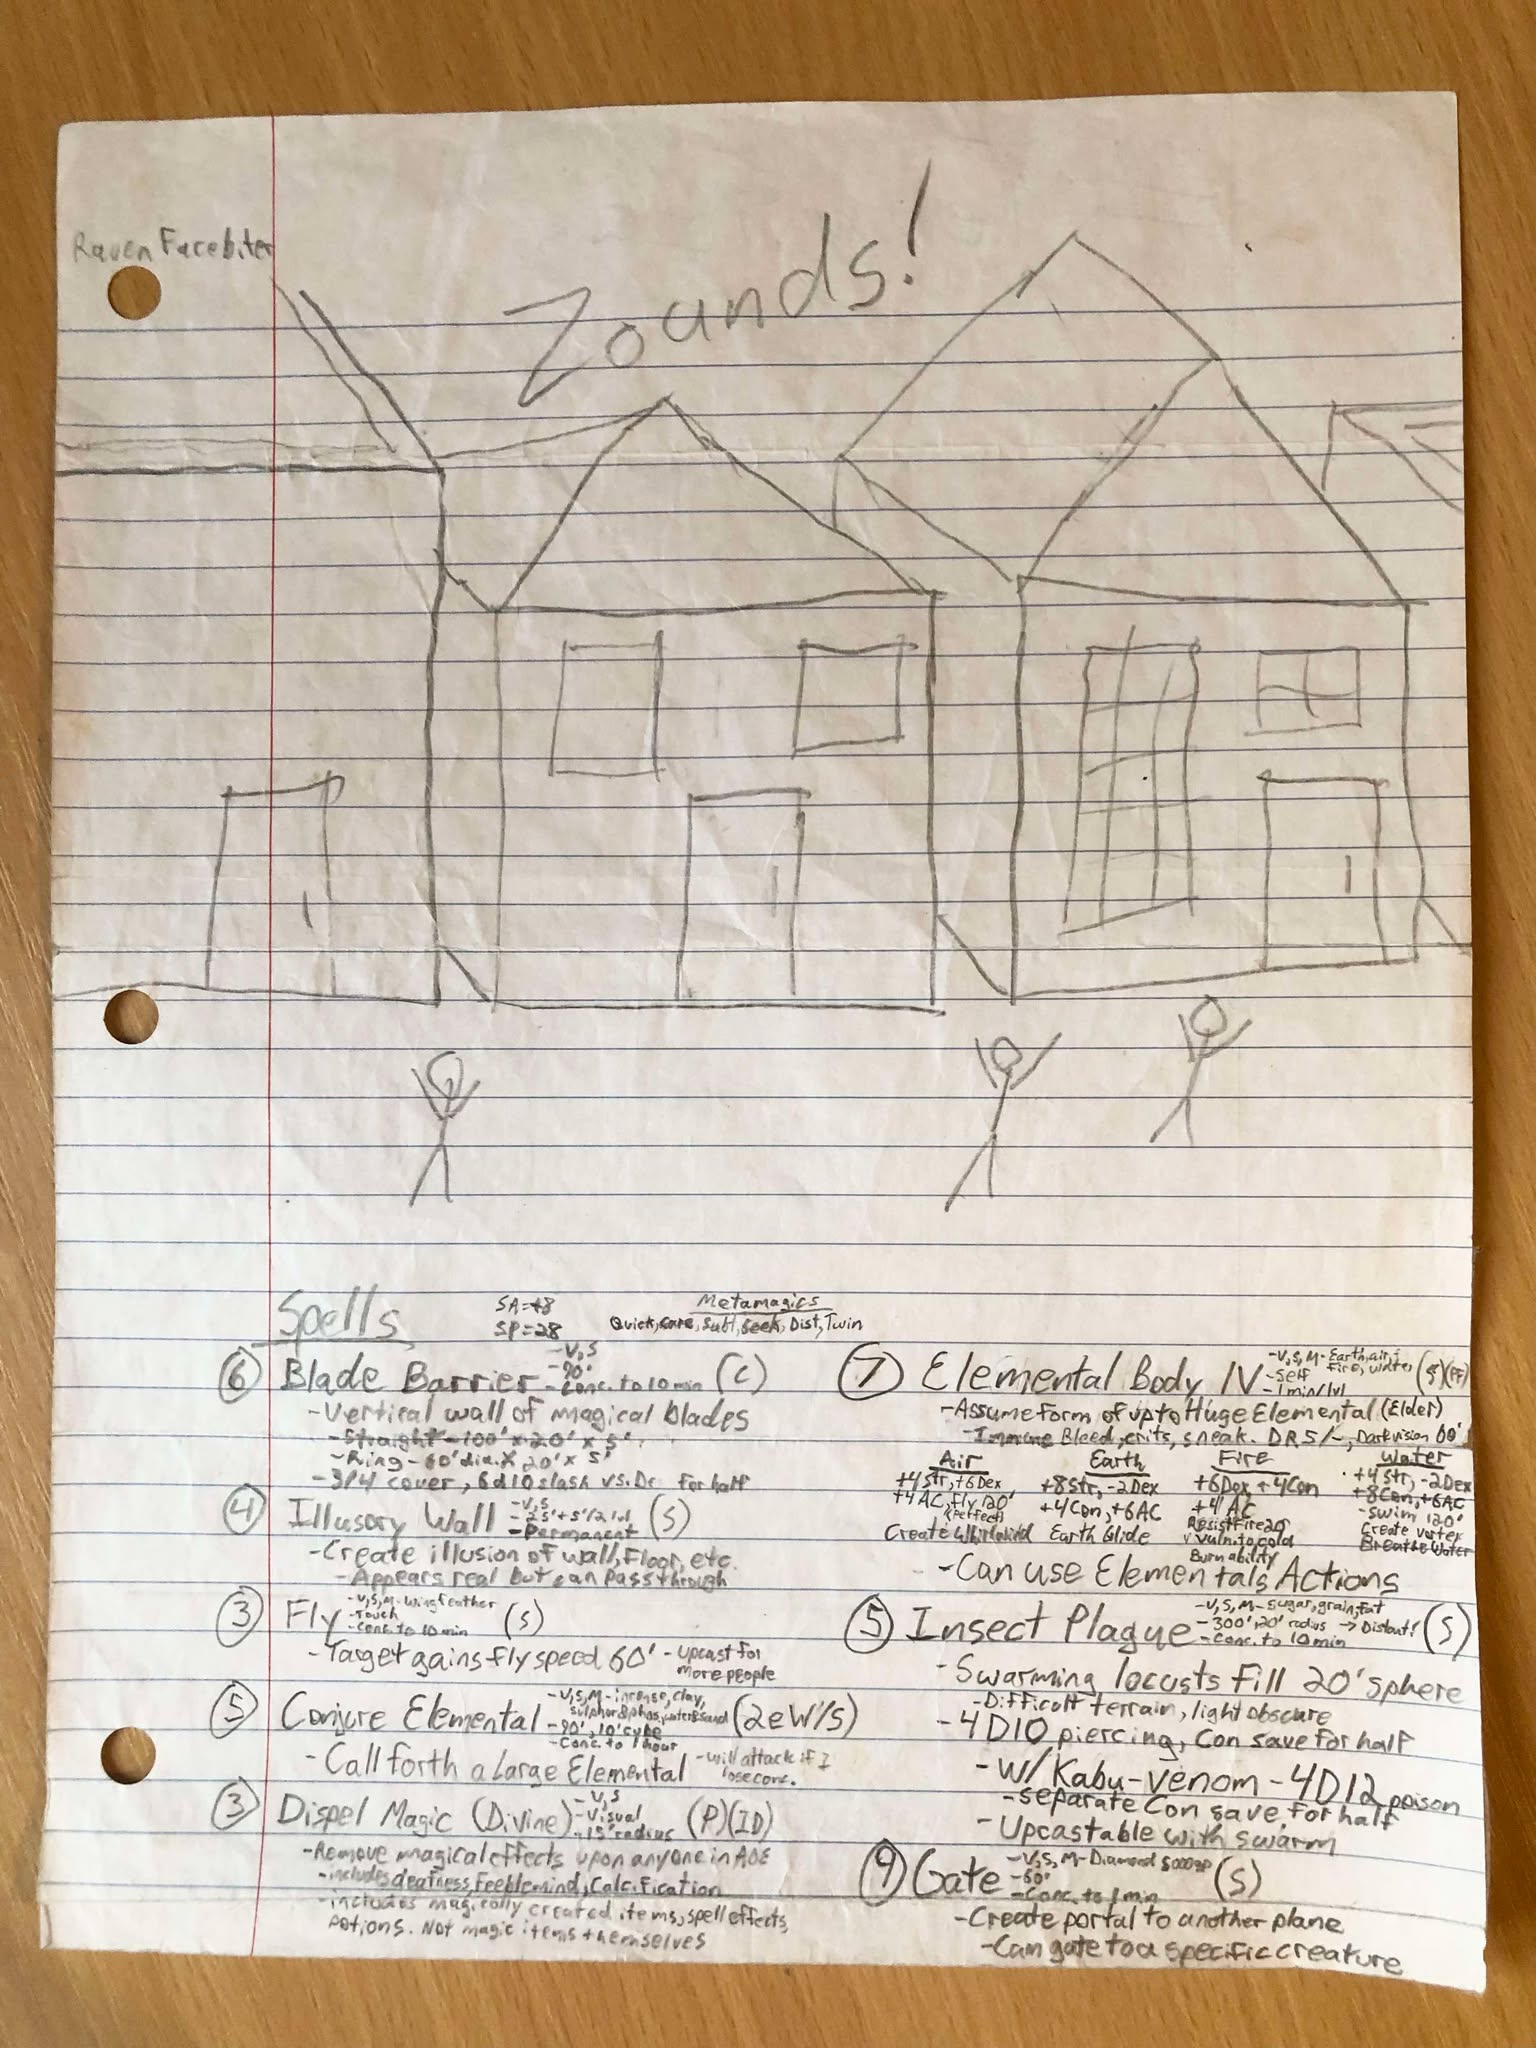 Raven Facebiter
Zounds!
Spells
SA=+8
SP=28
Metamagics
Quick, Care, Subt, Seek, Dist, Twin
6 Blade Barrier (C)
-V,S
-90'
-Conc. to 10 min
-Vertical wall of magical blades
-Straight-100'x20'x5'
-Ring-60'dia.x20'x5'
-3/4 cover, 6d10 slash vs. Dc for half
4 Illusory Wall (S)
-V,S
-25'+5'/2lvl
-Permanent
-Create illusion of wall, floor, etc.
-Appears real but can pass through
3 Fly (S)
-V,S,M-wing feather
-Touch
-Conc. to 10 min
-Target gains fly speed 60'
-Upcast for
more people
5 Conjure Elemental (2eW/S)
-V,S,M-incense, clay,
sulphor&phos, water&sand
-90', 10'cube
-Conc. to 1 hour
-Call forth a Large Elemental
-will attack if I
lose conc.
3 Dispel Magic (Divine) (P)(ID)
-V,S
-Visual
-15' radius
-Remove magical effects upon anyone in AOE
-includes deafness, Feeblemind, Calcification
-includes magically created items, spell effects,
potions. Not magic items themselves
7 Elemental Body IV
-V,S,M-Earth, air,
fire, water
-Self
-1min/lvl
(S)(PF)
-Assume form of up to Huge Elemental (Elder)
-Immune Bleed, crits, sneak. DR5/-, Darkvision 60'
Air
+4Str, +6Dex
+4AC, Fly 120'
(Perfect)
Create Whirlwind
Earth
+8Str, -2Dex
+4Con, +6AC
Earth Glide
Fire
+6Dex, +4Con
+4AC
Resist Fire 20
vuln. to cold
Burn ability
Water
+4Str, -2Dex
+8Con, +6AC
-Swim 120'
Create vortex
Breathe Water
-Can use Elementals Actions
5 Insect Plague (S)
-V,S,M-sugar, grain, fat
-300', 20' radius → Distant!
-Conc. to 10 min
-Swarming locusts fill 20' sphere
-Difficult terrain, light obscure
-4D10 piercing, Con save for half
-W/Kabu-venom-4D12 poison
-separate Con save for half
-Upcastable with swarm
9 Gate (S)
-V,S,M-Diamond 5000gp
-60'
-Conc. to 1 min
-Create portal to another plane
-Can gate to a specific creature